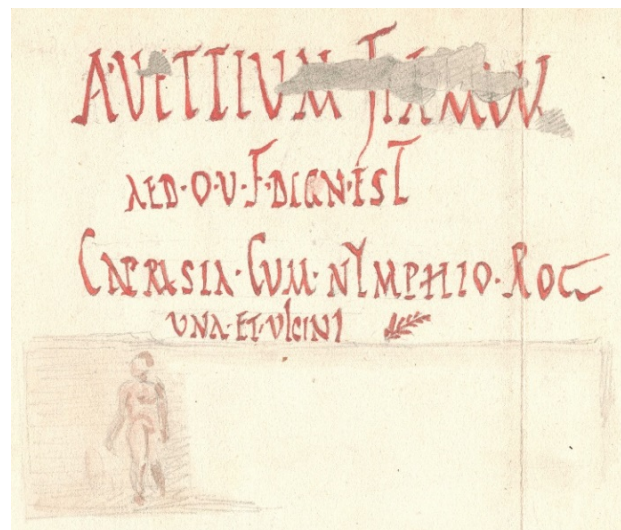 A·VETTIUM
AED·O·V·F·DIGN·EST
CAPRASIA·CUM·NYMPHIO·ROG
UNA·ET·VICINI